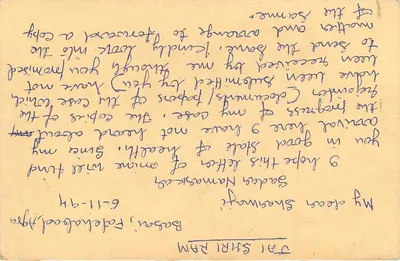 JAI SHRI RAM
Basai, Fatehabad, Agra
6-11-94
My dear Sharmaji
Sadar Namaskar
I hope this letter of mine will find
you in good state of health. Since my
arrival here I have not heard about
the progress of my case. The copies of the
Rejoinder (documents/papers of the case which
have been submitted by you) have not
been received by me though you promised
to send the same. Kindly look into the
matter and arrange to forward a copy
of the same.